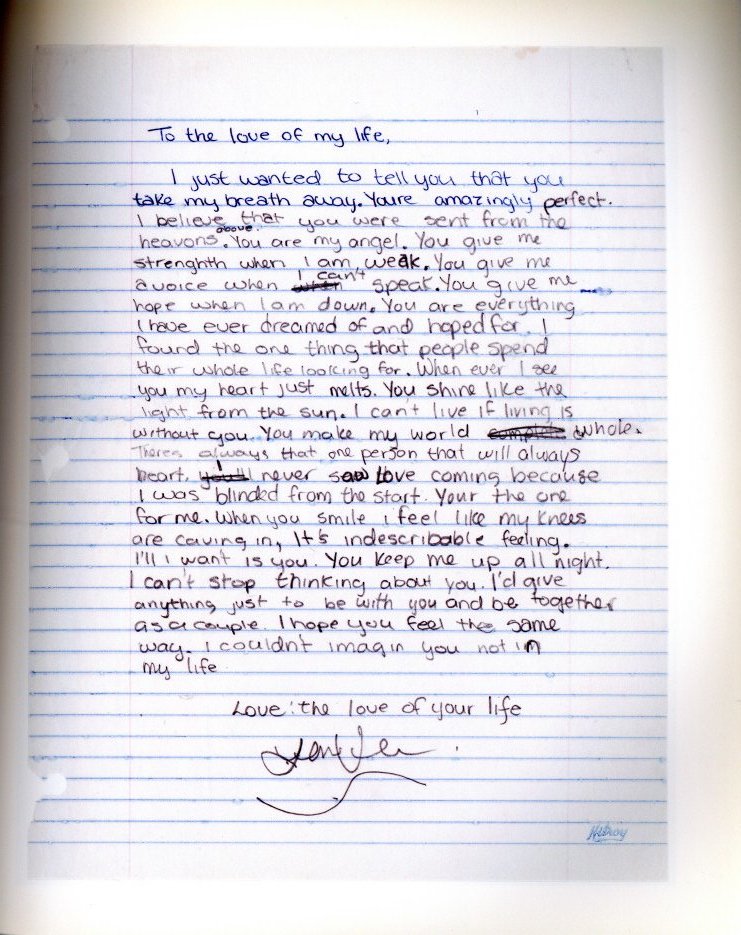 To the love of my life,
I just wanted to tell you that you
take my breath away. Youre amazingly perfect.
I believe that you were sent from the
heavens above. You are my angel. You give me
strenghth when I am weak. You give me
a voice when I can't speak. You give me
hope when I am down. You are everything
I have ever dreamed of and hoped for. I
found the one thing that people spend
their whole life looking for. When ever I see
you my heart just melts. You shine like the
light from the sun. I can't live if living is
without you. You make my world whole.
Theres always that one person that will always
heart. I never saw love coming because
I was blinded from the start. Your the one
for me. When you smile i feel like my knees
are caving in, It's indescribable feeling.
I'll i want is you. You keep me up all night.
I can't stop thinking about you. I'd give
anything just to be with you and be together
as a couple. I hope you feel the same
way. I couldn't imagin you not in
my life
Love: the love of your life